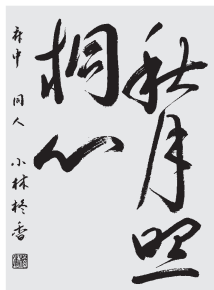 秋月照
桐心
府中 同人 小林柊香